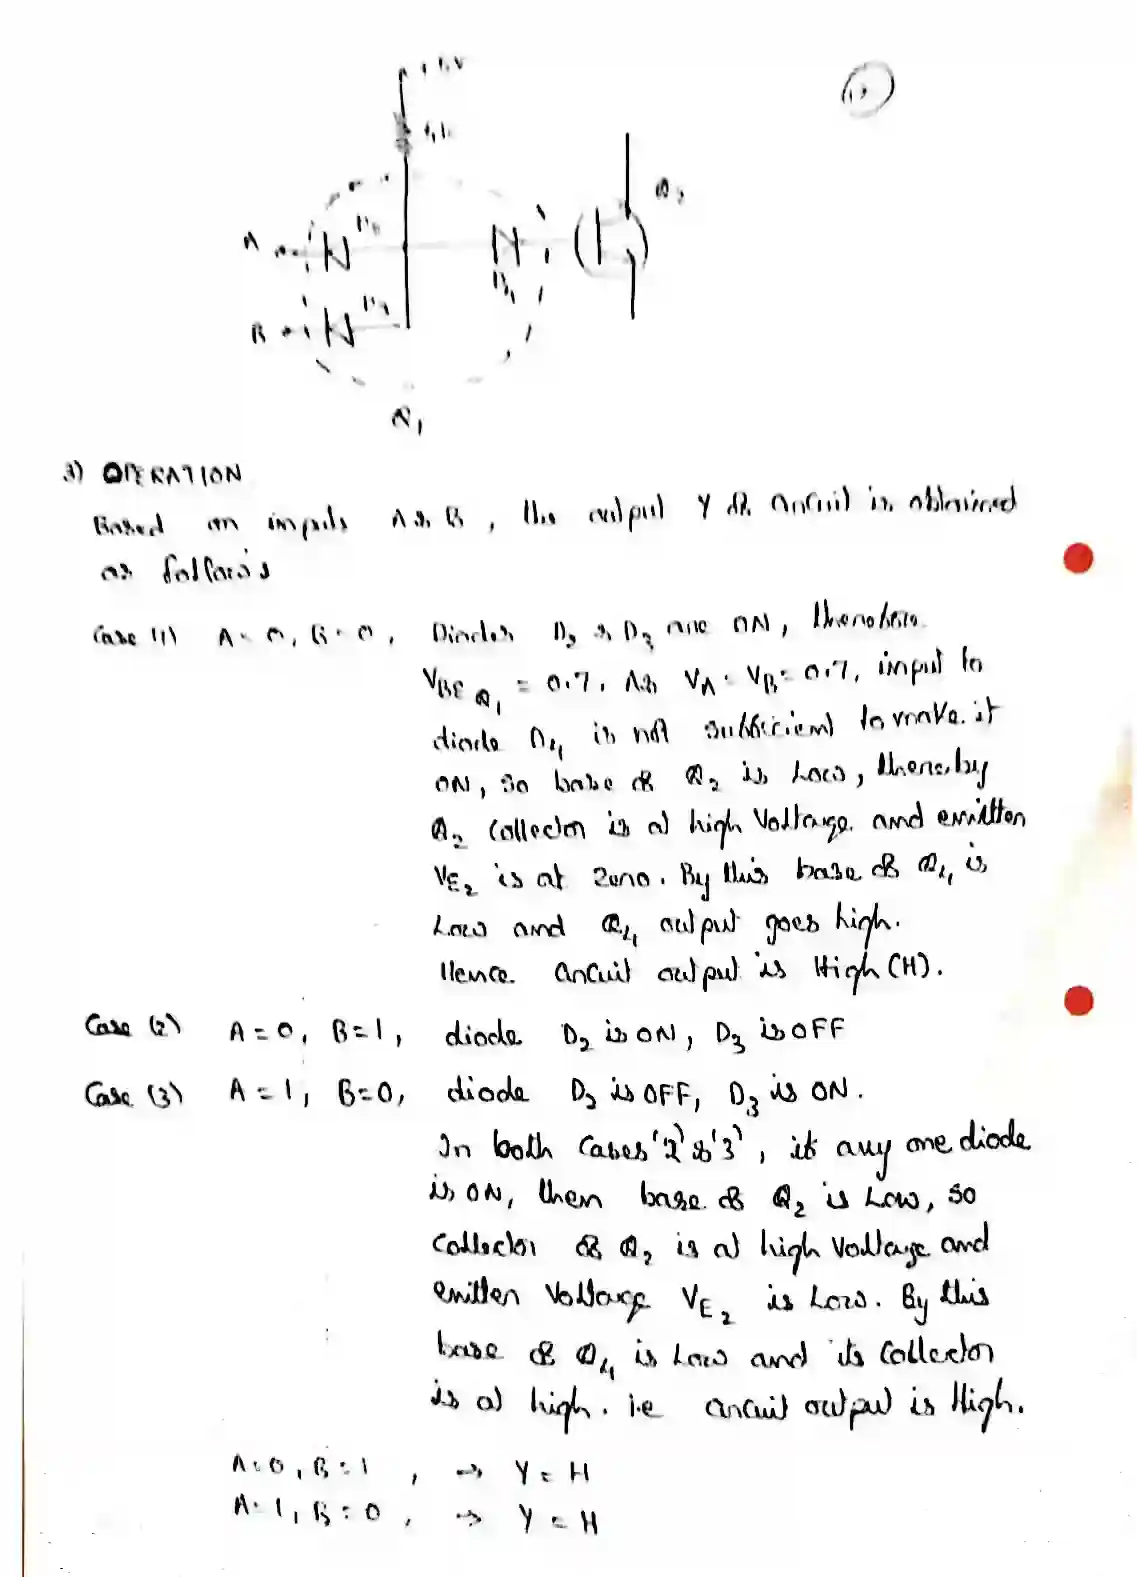 A
B
Q1
3) OPERATION
Based on inputs A & B, the output Y of circuit is obtained
as follows
Case (1) A = 0, B = 0, Diodes D2 & D3 are ON, therefore
VBE Q1 = 0.7. As VA = VB = 0.7, input to
diode D4 is not sufficient to make it
ON, so base of Q2 is Low, thereby
Q2 collector is at high Voltage and emitter
VE2 is at zero. By this base of Q4 is
Low and Q4 output goes high.
Hence circuit output is High (H).
Case (2) A = 0, B = 1, diode D2 is ON, D3 is OFF
Case (3) A = 1, B = 0, diode D2 is OFF, D3 is ON.
In both Cases '2' & '3', if any one diode
is ON, then base of Q2 is Low, so
Collector of Q2 is at high Voltage and
emitter Voltage VE2 is Low. By this
base of Q4 is Low and its Collector
is at high. i.e circuit output is High.
A = 0, B = 1, → Y = H
A = 1, B = 0, → Y = H